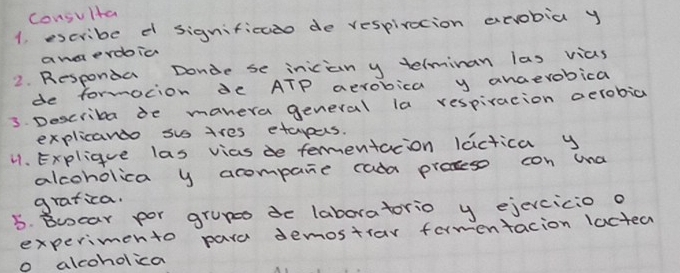 Consulta
1. escribe el significado de respiracion aerobia y
anaerobia
2. Responda Donde se inician y terminan las vias
de formacion de ATP aerobica y anaerobica
3. Describa de manera general la respiracion aerobia
explicando sus tres etapas.
4. Explique las vias de fermentacion láctica y
alcoholica y acompañe cada proceso con una
grafica.
5. Buscar por grupos de laboratorio y ejercicio o
experimento para demostrar fermentacion lactea
o alcoholica